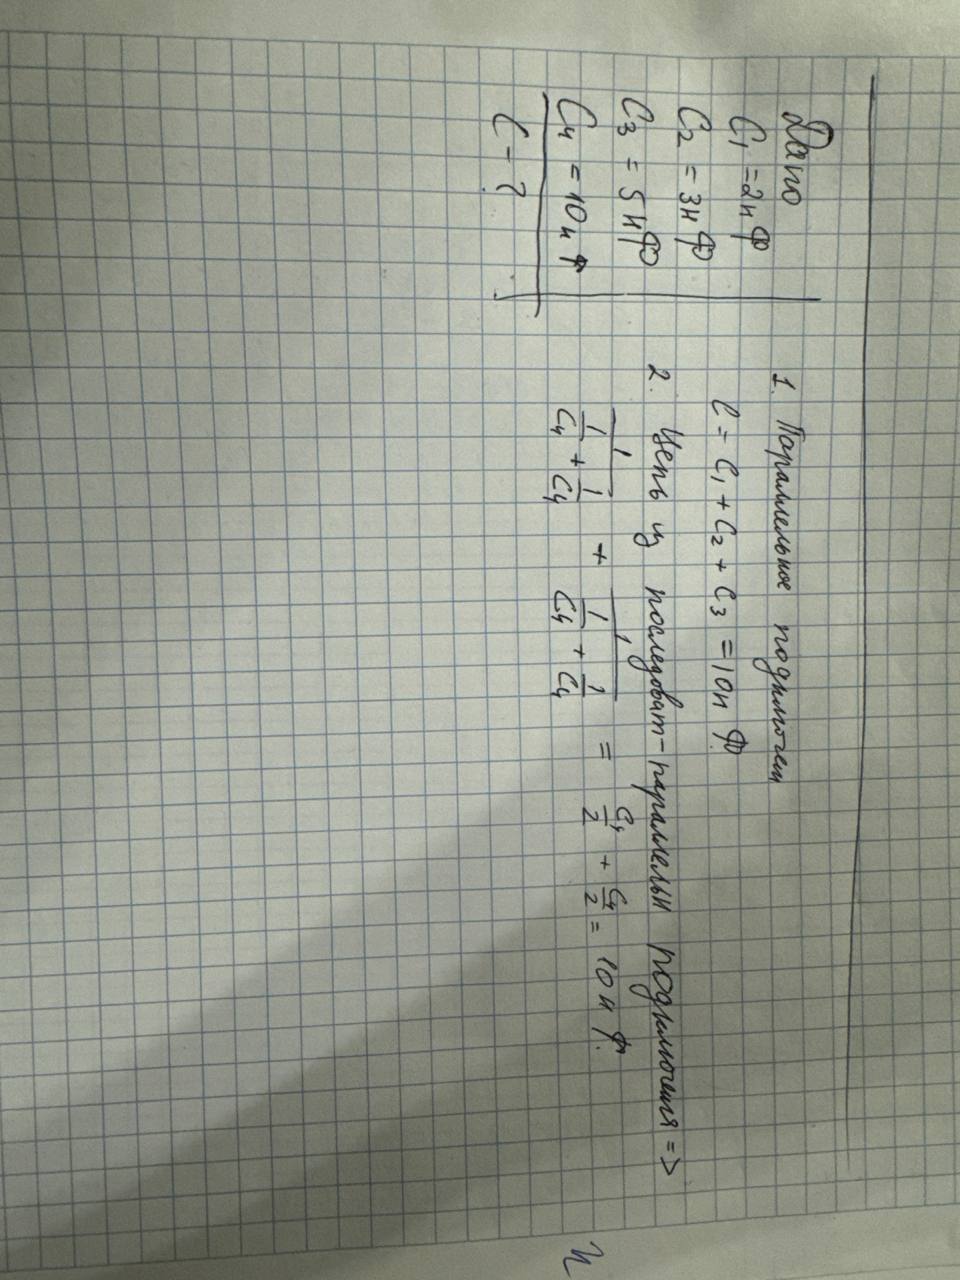 Дано
C₁ = 2нФ
C₂ = 3нФ
C₃ = 5нФ
C₄ = 10нФ
C - ?
1. Параллельное подключен
C = C₁ + C₂ + C₃ = 10нФ.
2. Цепь из последоват-параллельн подключения =>
1/(1/C₄ + 1/C₄) + 1/(1/C₄ + 1/C₄) = C₄/2 + C₄/2 = 10нФ.